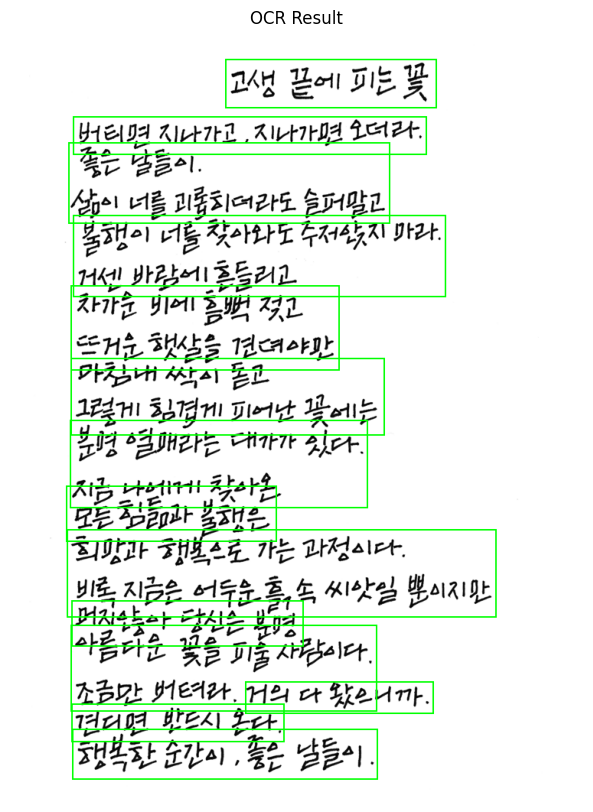 OCR Result
고생 끝에 피는 꽃
버티면 지나가고, 지나가면 오더라.
좋은 날들이.
삶이 너를 괴롭히더라도 슬퍼말고
불행이 너를 찾아와도 주저앉지 마라.
거센 바람에 흔들리고
차가운 비에 흠뻑 젖고
뜨거운 햇살을 견뎌야만
마침내 싹이 돋고
그렇게 힘겹게 피어난 꽃에는
분명 열매라는 대가가 있다.
지금 나에게 찾아온
모든 힘듦과 불행은
희망과 행복으로 가는 과정이다.
비록 지금은 어두운 흙 속 씨앗일 뿐이지만
머지않아 당신은 분명
아름다운 꽃을 피울 사람이다.
조금만 버텨라. 거의 다 왔으니까.
견디면 반드시 온다.
행복한 순간이, 좋은 날들이.